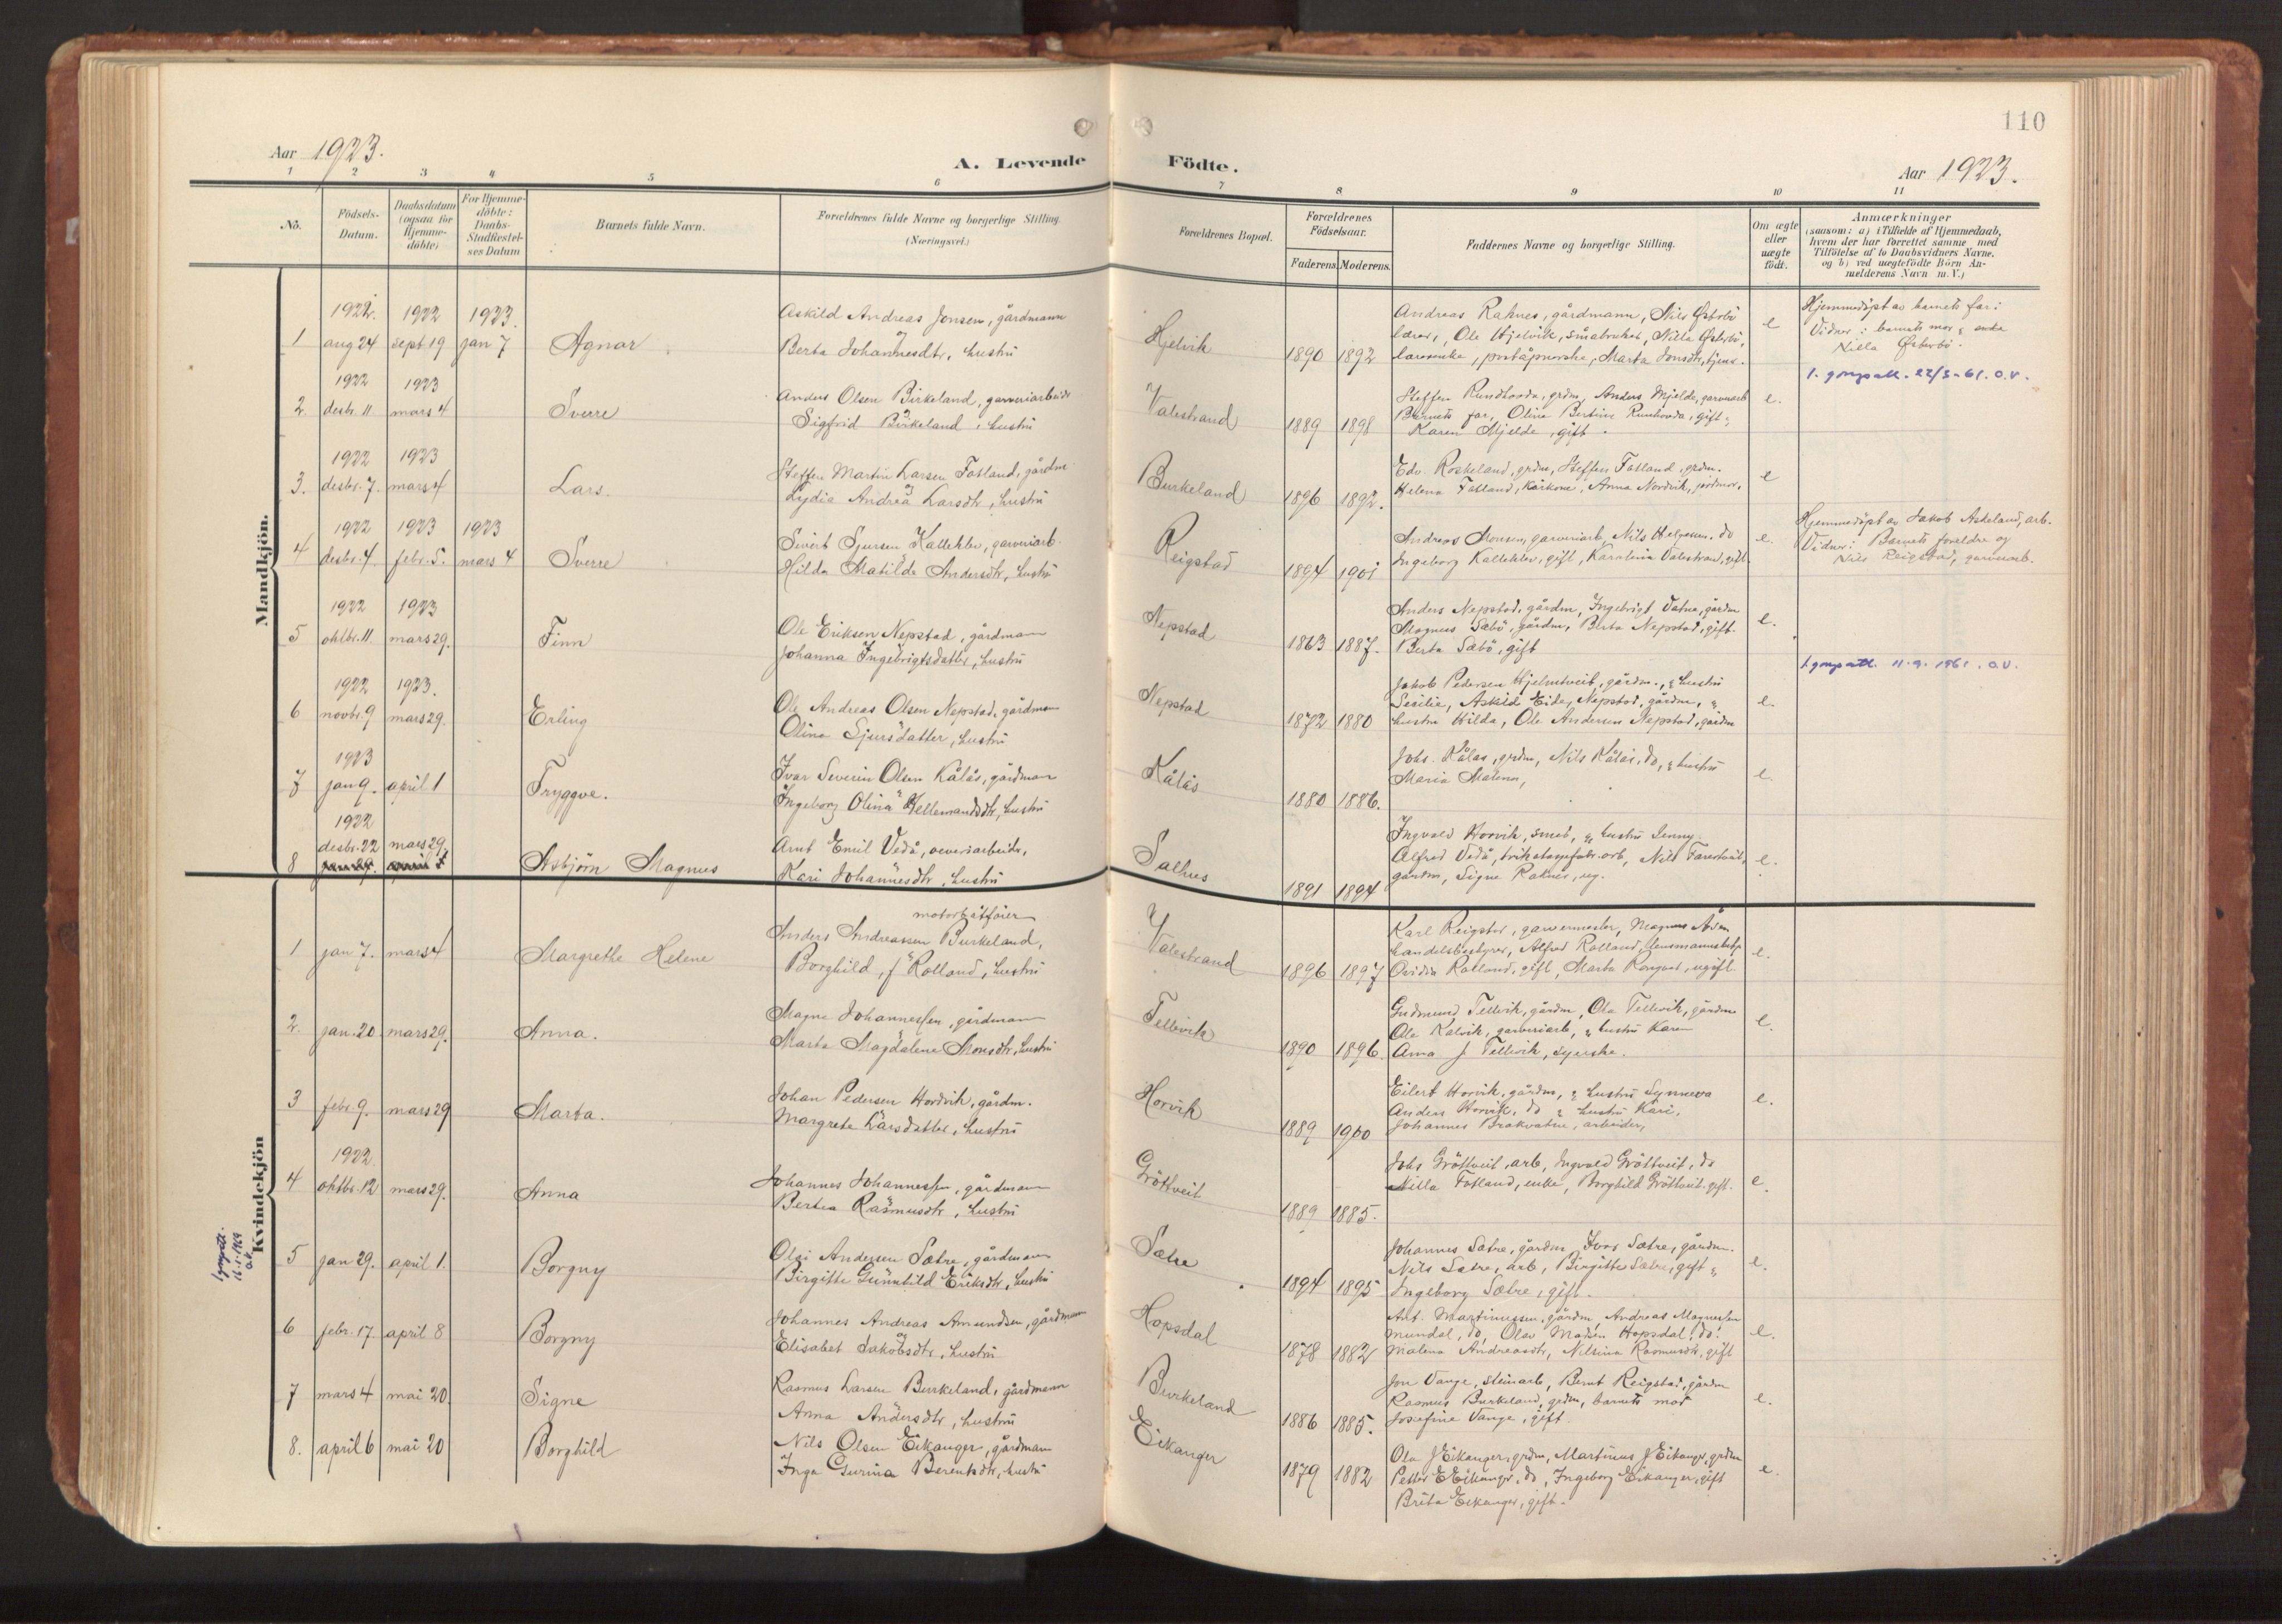 110
Aar 1923.
A. Levende Födte.
Aar 1923.
1 2 3 4 5 6 7 8 9 10 11
No.
Födsels-
Datum.
Daabsdatum
(ogsaa for
Hjemme-
döbte)
For Hjemme-
döbte:
Daabs-
Stadfæstel-
ses Datum
Barnets fulde Navn.
Forældrenes fulde Navne og borgerlige Stilling.
(Næringsvei.)
Forældrenes Bopæl.
Forældrenes
Födselsaar.
Faderens. Moderens.
Faddernes Navne og borgerlige Stilling.
Om ægte
eller
uægte
født.
Anmærkninger
(saasom: a) i Tilfælde af Hjemmedaab,
hvem der har forrettet samme med
Tilföielse af to Daabsvidners Navne.
og b) ved uægtefödte Börn An-
melderens Navn m. V.)
Mandkjön.
1922. 1922 1923.
1 aug 24 sept 19 jan 7 Agnar
Askild Andreas Jonsen, gårdmann
og
Berta Johannesdtr, hustru
Hjelvik 1890 1892
Andreas Raknes, gårdmann, Nils Østerbö
lærer, Ole Hjelvik, småbruker, Nilla Østerbö,
lærerenke, poståpnerske, Marta Jonsdtr, tjen.
e
Hjemmedöpt av barnets far:
Vidner: barnets mor & enke
Nilla Østerbö.
1. gongsatt. 22/3-61. O.V.
1922 1923
2. desbr. 11 mars 4 Sverre
Anders Olsen Birkeland, garveriarbeider
og
Sigfrid Birkeland, hustru
Valestrand 1889 1898
Steffen Rundhovde, grdm, Anders Mjelde, garveriarb
Barnets far, Olina Bertine Rundhovde, gift &
Karen Mjelde, gift.
e.
1922 1923
3. desbr. 7. mars 4 Lars.
Steffen Martin Larsen Fotland, gårdm
og
Lydia Andrea Larsdtr, hustru
Burkeland 1896 1892.
Edv. Roskeland, grdm, Steffen Fotland, grdm.
Helena Fotland, kårkone, Anna Nordvik, jordmor.
e
1922 1923 1923
4 desbr. 4. febr. 5. mars 4 Sverre
Sivert Sjursen Kallekleiv, garveriarb.
Hilda Matilde Andersdtr, hustru
Reigstad 1894 1901
Andreas Monsen, garveriarb, Nils Helgesen. do
Ingeborg Kallekleiv, gift, Karolina Valestrand, gift.
e.
Hjemmedöpt av Jakob Askeland, arb.
Vidner: Barnets foreldre og
Nils Reigstad, garveriarb.
1922 1923
5 oktbr. 11. mars 29. Finn
Ole Eriksen Nepstad, gårdmann
Johanna Ingebrigtsdatter, hustru
Nepstad 1863 1887.
Anders Nepstad, gårdm, Ingebrigt Vatne, gårdm
Magnus Sæbö, gårdm, Berta Nepstad, gift.
Berta Sæbö, gift
e.
1. gongsatt. 11.9.1961. O.V.
1922 1923.
6 novbr. 9 mars 29. Erling
Ole Andreas Olsen Nepstad, gårdmann
Olina Sjursdatter, hustru
Nepstad 1872 1880
Jakob Pedersen Hjelmtveit, gårdm., & hustru
Secilie, Askild Eide, Nepstad, gårdm, &
hustru Hilda, Ole Andersen Nepstad, gårdm
e.
1923
7 jan 9. april 1 Tryggve.
Ivar Severin Olsen Kålås, gårdmann
Ingeborg Olina Hellemandsdtr, hustru
Kålås 1880 1886.
Johs. Kålås, grdm, Nils Kålås, do, & hustru
Maria Malena,
e.
1922
desbr. 22 mars 29.
8 Asbjörn Magnus
Arnt Emil Vedå, veveriarbeider,
Kari Johannesdtr, hustru
Salhus 1891 1894
Ingvald Horvik, smed, & hustru Jenny.
Alfred Vedå, trikotagefabr.arb, Nils Tavertveit,
gårdm, Signe Raknes, ug.
e.
Kvindekjön
1 jan 7. mars 4 Margrethe Helene
motorbåtförer
Anders Andreassen Burkeland,
Borghild, f. Rolland, hustru
Valestrand 1896 1897
Karl Reigstad, garvermester, Magnus Åsen
handelsbestyrer, Alfred Rolland, lensmannsbetj.
Ovidia Rolland, gift, Marta ugift.
e.
2. jan. 20 mars 29. Anna.
Magne Johannessen, gårdmann
Marta Magdalene Monsdtr, hustru
Tellevik 1890 1896.
Gudmund Tellevik, gårdm, Ola Tellevik, gårdm
Ole Kalvik, garveriarb, & hustru Karen
Anna J Tellevik, syerske.
e.
3 febr. 9. mars 29 Marta.
Johan Pedersen Hordvik, gårdm.
Margreta Larsdatter, hustru
Horvik 1889 1900
Eilert Horvik, gårdm, & hustru Synneva
Anders Horvik, do & hustru Kari,
Johannes Brakvatne, arbeider,
e.
1922.
4 oktbr. 12 mars 29. Anna
Johannes Johannessen, gårdmann
Bertea Rasmusdtr, hustru
Gröttveit 1889 1885.
Johs Gröttveit, arb, Ingvald Gröttveit, do
Nilla Fotland, enke, Borghild Gröttveit. gift.
e.
1 gongatt. 16-1-1969 O.V.
5 jan 29. april 1. Borgny
Olai Andersen Sætre, gårdmann
Birgitte Gunnhild Eriksdtr, hustru
Sætre 1894 1895
Johannes Sætre, gårdm, Ivar Sætre, gårdm.
Nils Sætre, arb, Birgitte Sætre, gift &
Ingeborg Sætre, gift.
e.
6 febr. 17 april 8 Borgny
Johannes Andreas Amundsen, gårdmann
og
Elisabet Jakobsdtr, hustru
Hopsdal 1878 1882
Ant. Martinussen, gårdm, Andreas Magnessen
Mundal, do, Olav Madsen Hopsdal, do.
Malena Andreasdtr, Nelsina Rasmusdtr, gift
e.
7 mars 4 mai 20. Signe
Rasmus Larsen Burkeland, gårdmann
Anna Andersdtr, hustru
Burkeland 1886 1885.
Jon Vange, steinarb, Bernt Reigstad, gårdm
Rasmus Burkeland, grdm, barnets mor
Josefine Vange, gift.
e.
8. april 6 mai 20 Borghild
Nils Olsen Eikanger, gårdmann
Inga Gurina Berentsdtr, hustru
Eikanger 1879 1882
Ola J Eikanger, grdm, Martinus J Eikanger, grdm
Petter E Eikanger, do, Ingeborg Eikanger, gift
Brita Eikanger, gift.
e.